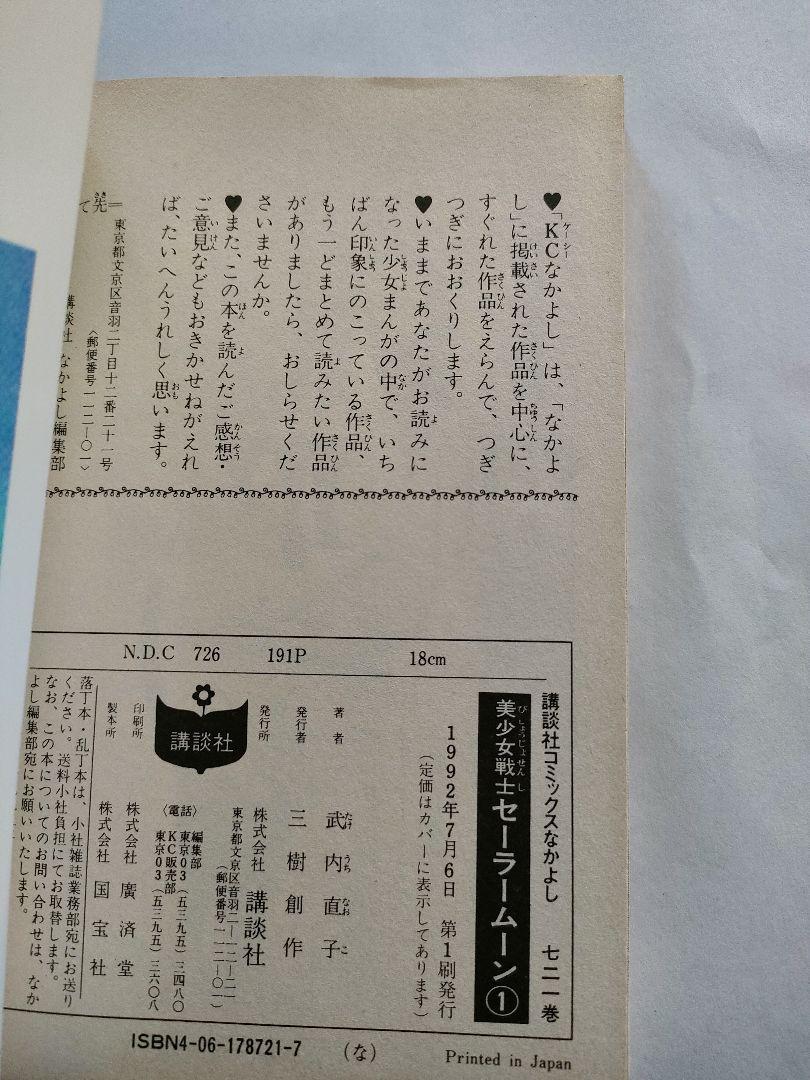 ♥「KCなかよし」は、「なかよ
し」に掲載された作品を中心に、
すぐれた作品をえらんで、つぎ
つぎにおおくりします。
♥いままであなたがお読みに
なった少女まんがの中で、いち
ばん印象にのこっている作品、
もう一どまとめて読みたい作品
がありましたら、おしらせくだ
さいませんか。
♥また、この本を読んだご感想・
ご意見などもおきかせねがえれ
ば、たいへんうれしく思います。
東京都文京区音羽二丁目十二番二十一号
〈郵便番号一一二-〇一〉
講談社 なかよし編集部
N.D.C 726 191P 18cm
講談社コミックスなかよし 七二一巻
美少女戦士セーラームーン①
1992年7月6日 第1刷発行
(定価はカバーに表示してあります)
著者 武内直子
発行者 三樹創作
発行所 株式会社 講談社
東京都文京区音羽二-一二-二一
(郵便番号一一二-〇一)
〈電話〉編集部
東京03(五三九五)三四八〇
KC販売部
東京03(五三九五)三六〇八
講談社
印刷所 株式会社 廣済堂
製本所 株式会社 国宝社
落丁本・乱丁本は、小社雑誌業務部宛にお送り
ください。送料小社負担にてお取替します。
なお、この本についてのお問い合わせは、なか
よし編集部宛にお願いいたします。
ISBN4-06-178721-7 (な) Printed in Japan